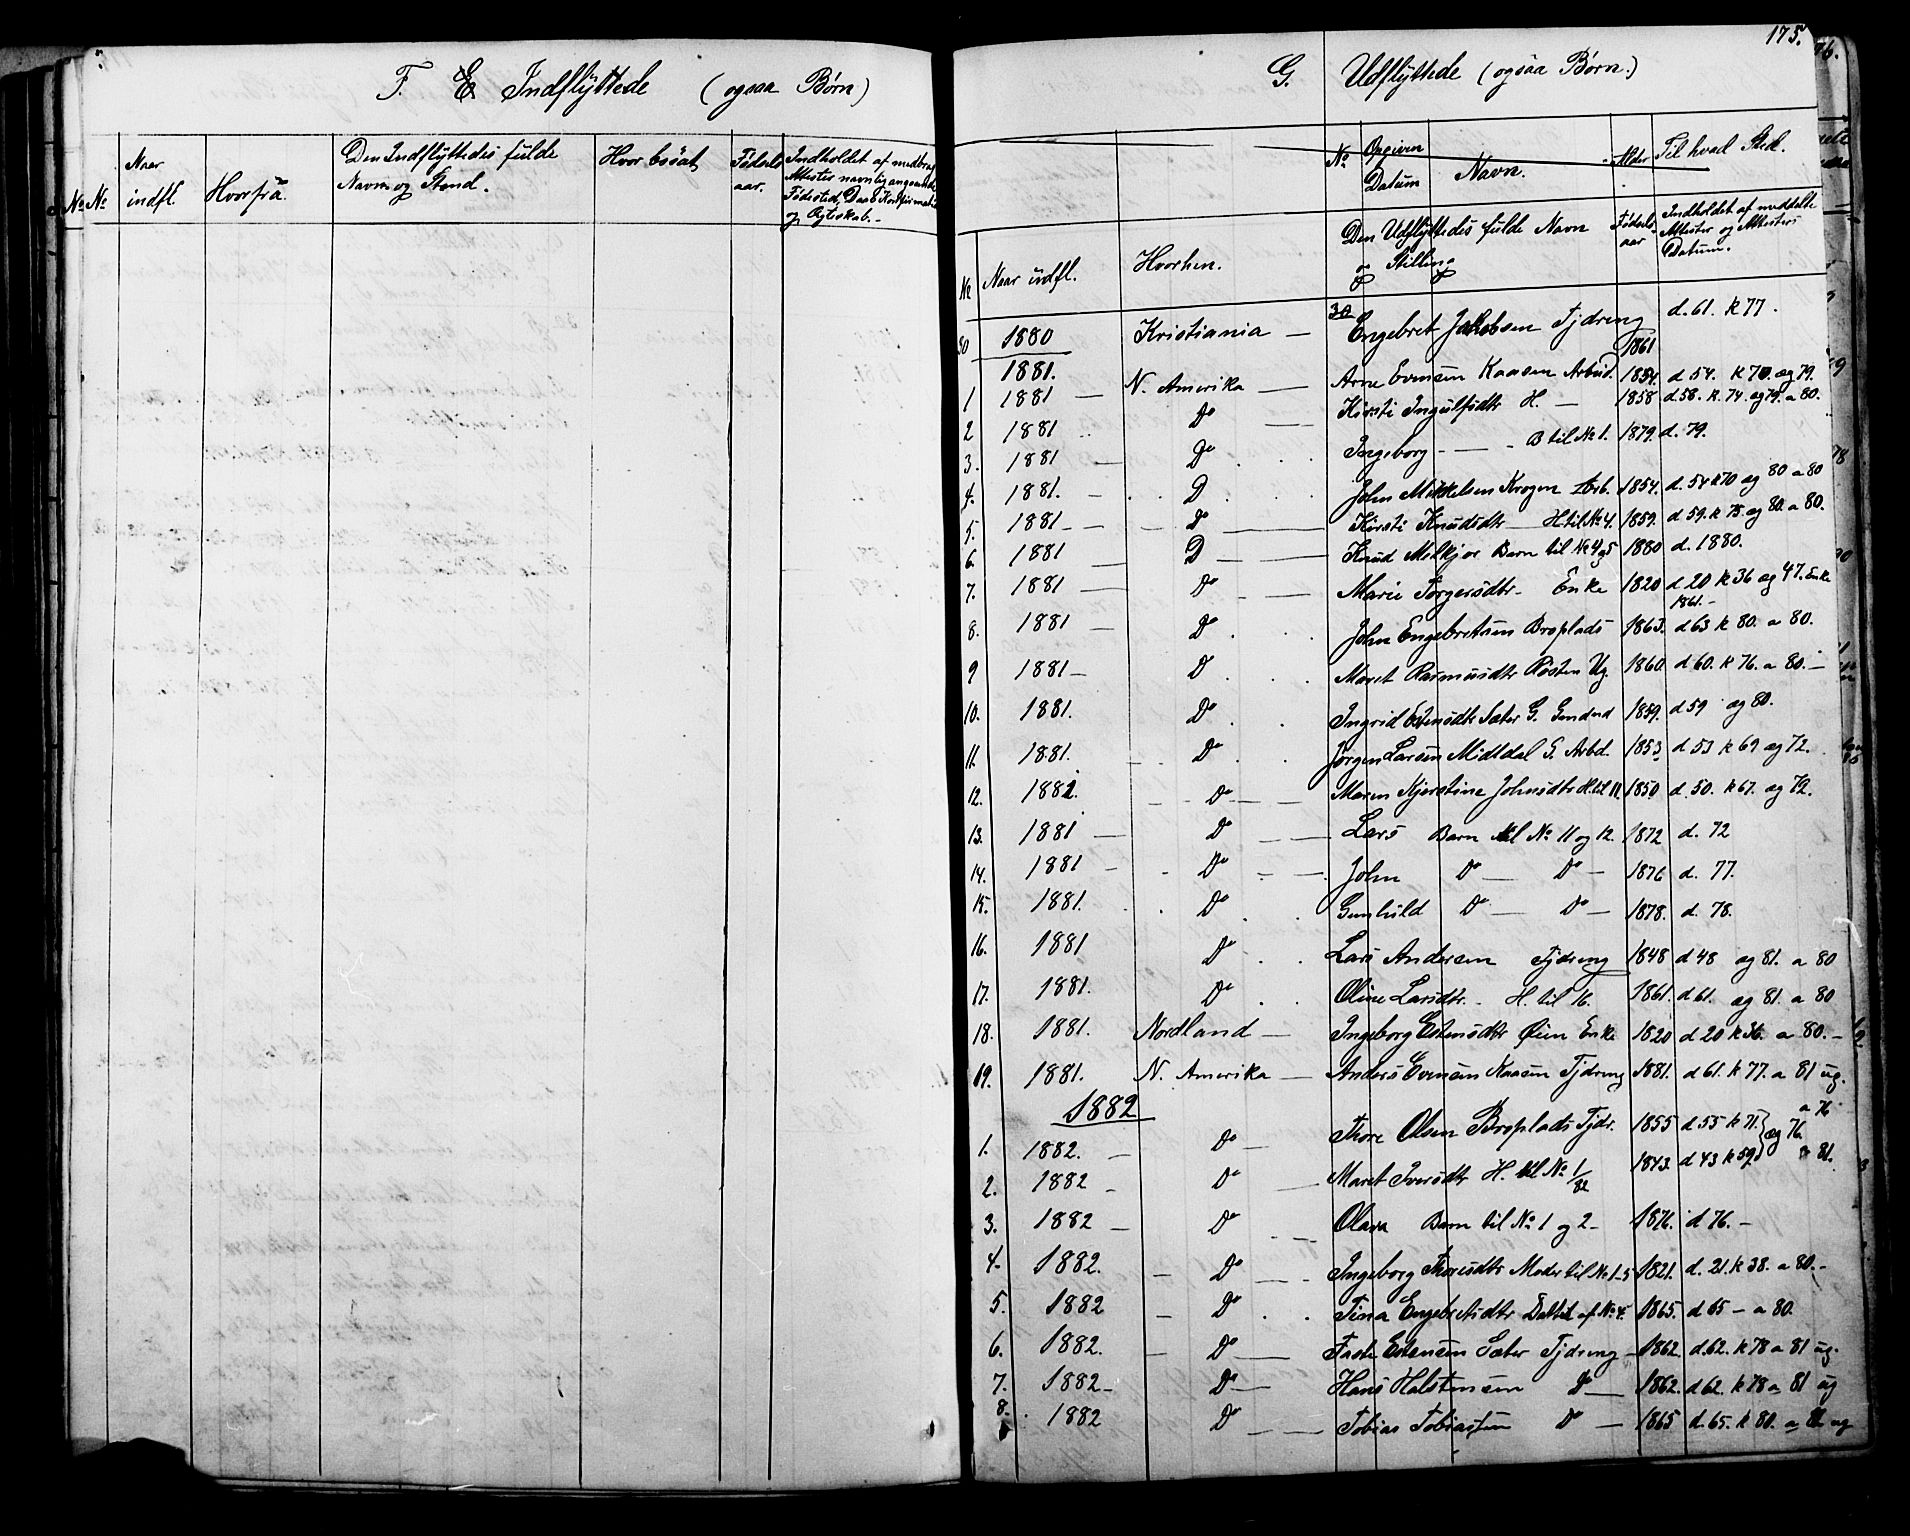 F. E Indflyttede (ogsaa Børn)
No No
Naar indfl.
Hvorfra.
Den Indflyttedes fulde Navn og Stand.
Hvor bosat
Fødselsaar.
Indholdet af
Attester navnlig
Fødested, Daab
og Ægteskab.
175.
G. Udflyttede (ogsaa Børn.)
No Opgiven Datum Navn. Alder Til hvad Sted.
No Naar udfl. Hvorhen. Den Udflyttedes fulde Navn og Stilling Fødselsaar Indholdet af meddelte Attester og Attesters Datum.
30 1880 Kristiania — Engebret Jakobsen Tjdreng 1861 d. 61. k 77.
1881.
1 1881 — N. Amerika — Arne Evensen Kaasen Arbud. 1854. d 54. k 70. æg 79.
2 1881 Do — Kirsti Ingulfsdtr H. — 1858 d. 58. k. 74. æg 79. a 80.
3. 1881 — Do Ingeborg — B til No 1. 1879. d. 79.
4. 1881. — D. John Mikkelsen Krogen Arb. 1854. d. 54 k 70 æg 80 a 80
5. 1881 — Do — Kirsti Knudsdtr — H til No 4. 1859. d 59. k 75. æg 80. a 80.
6. 1881 D — Knud Melkjor Barn til No 4 og 5 1880 d. 1880.
7. 1881 — Do — Marie Torgersdtr — Enke 1820 d 20 k 36 æg 47. Enke 1861. —
8. 1881 — Do John Engebretsen Broplads 1863. d 63 k 80. a 80.
9 1881 — D Maret Rasmusdtr Røsten Ug. 1860 d 60. k 76. a 80. —
10. 1881. Do Ingrid Estensdtr Sæter G. 1859. d 59 æg 80.
11. 1881. Do Jørgen Larsen Midtdal G. Arbd. 1853 d 53 k 69 æg 72.
12. 1881. Do — Maren Kjerstine Johnsdtr H. til 11. 1850 d. 50. k 67. æg 72.
13. 1881 — Do — Lars Barn til No 11 og 12. 1872 d. 72
14. 1881 — Do — John Do — Do — 1876 d. 77.
15. 1881. Do Gunhild Do — Do — 1878. d. 78.
16. 1881 Do Lars Andersen Tjdreng 1848 d 48 æg 81. a 80
17. 1881. Do Oline Larsdtr. — H. til 16. 1861. d 61. æg 81. a 80
18. 1881. Nordland — Ingeborg Estensdtr Øien Enke 1820 d 20 k 36. a 80. —
19. 1881. N. Amerika — Anders Evensen Kaasen Tjdreng 1881. d 61. k 77. a 81 ug.
1882
1. 1882. — Do — Thore Olsen Broplads Tjdr. 1855 d 55 k 71. } æg 76. a 76
2. 1882 Do — Maret Iversdtr H. til No 1/82 1843. d 43 k 59. a 81.
3. 1882 — Do — Olava Barn til No 1 og 2 — 1876. d 76. —
4. 1882. — Do — Ingeborg Thoresdtr Moder til No 1-5 1821. d. 21. k 38. a 80. —
5. 1882 — Do Tina Engebretsdtr Datter af No 4. 1865. d 65 — a 80.
6. 1882. — Do — Faste Estensen Sæter Tjdreng — 1862 d 62. k 78 a 81 ug.
7. 1882 — Do — Hans Halstensen Do — 1862. d 62. k 78 a 81 ug
8. 1882 Do — Tobias Tobiassen Do — 1865 d. 65. k 80. a 82 ug